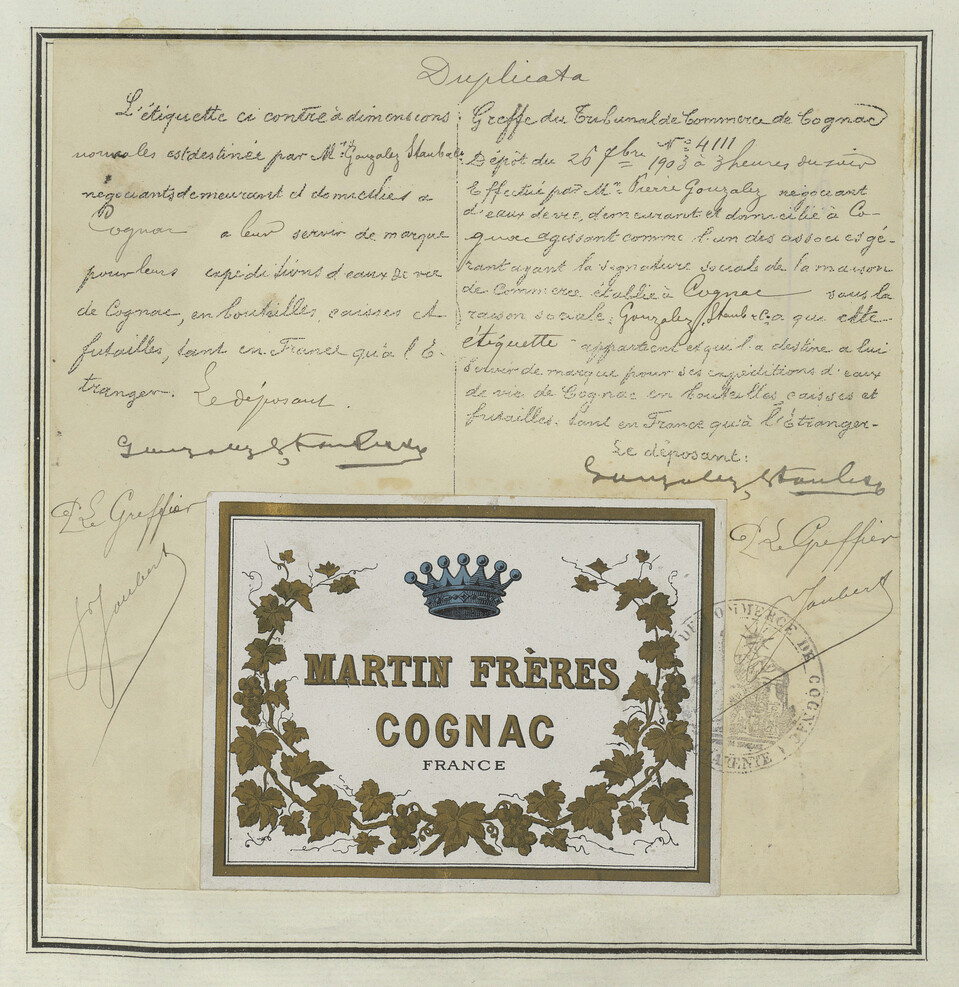 Duplicata
L'étiquette ci contre à dimensions
nouvales est destinée par Mrs Gonzalez Staub & Co
négociants demeurant et domiciliés a
Cognac a leur servir de marque
pour leurs expéditions d'eaux de vie
de Cognac, en bouteilles, caisses et
futailles, tant en France qu'à l'É-
tranger. Le déposant.
Gonzalez, Staub & Co
Pr Le Greffier
Joubert
Greffe du Tribunal de Commerce de Cognac
No 4111
Dépôt du 26 7bre 1903 à 3 heures du soir
Effectué par Mr Pierre Gonzalez négociant
d'eaux de vie, demeurant et domicilié à Co-
gnac agissant comme l'un des associés gé-
rant ayant la signature sociale de la maison
de Commerce établie à Cognac sous la
raison sociale, Gonzalez, Staub & Co. que cette
étiquette appartient et qu'il a destine a lui
servir de marque pour ses expéditions d'eaux
de vie de Cognac en bouteilles, caisses et
futailles. tant en France qu'à l'Étranger-
Le déposant:
Gonzalez, Staub & Co
Pr Le Greffier
Joubert
MARTIN FRÈRES
COGNAC
FRANCE
DE COMMERCE DE COGNAC
CHARENTE